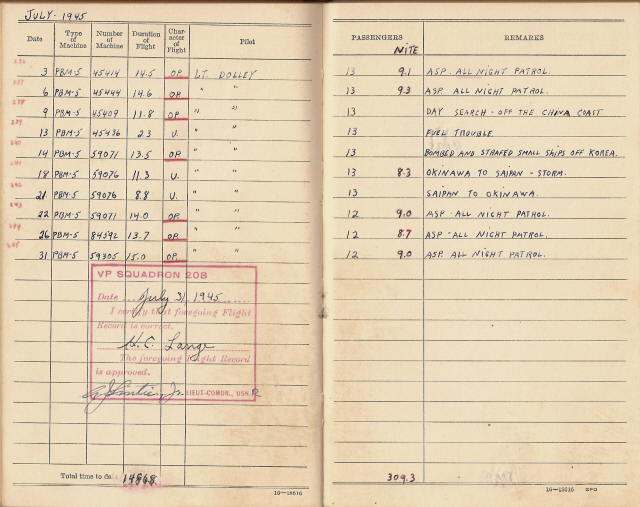 JULY - 1945
Date Type of Machine Number of Machine Duration of Flight Character of Flight Pilot PASSENGERS NITE REMARKS
3 PBM-5 45414 14.5 OP. LT. DOLLEY 13 9.1 ASP. ALL NIGHT PATROL.
6 PBM-5 45444 14.6 OP. " " 13 9.3 ASP. ALL NIGHT PATROL.
9 PBM-5 45409 11.8 OP. " " 13 DAY SEARCH - OFF THE CHINA COAST
13 PBM-5 45436 2.3 U. " " 13 FUEL TROUBLE.
14 PBM-5 59071 13.5 OP. " " 13 BOMBED AND STRAFED SMALL SHIPS OFF KOREA.
18 PBM-5 59076 11.3 U. " " 13 8.3 OKINAWA TO SAIPAN - STORM.
21 PBM-5 59076 8.8 U. " " 13 SAIPAN TO OKINAWA.
22 PBM-5 59071 14.0 OP. " " 12 9.0 ASP. ALL NIGHT PATROL.
26 PBM-5 84592 13.7 OP. " " 12 8.7 ASP. ALL NIGHT PATROL.
31 PBM-5 59305 15.0 OP. " " 12 9.0 ASP. ALL NIGHT PATROL.
VP SQUADRON 208
Date July 31, 1945
I certify that foregoing Flight
Record is correct.
H.C. Lange
The foregoing Flight Record
is approved.
Jr. LIEUT-COMDR., USNR
Total time to date 309.3
16—18616
16—18616 GPO